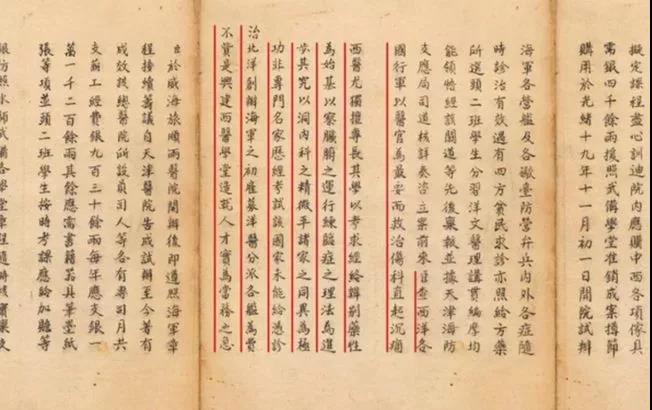 擬定課程盡心訓迪院內應購中西各項傢具
需銀四千餘兩援照武備學堂准銷成案撙節
購用於光緒十九年十一月初一日開院試辦
海軍各營艦及各礮臺防營弁兵內外各症隨
時診治有效遇有四方貧民求診亦照給方藥
所選頭二班學生分習洋文醫理講貫編摩均
能領悟經該關道等先後稟報並據天津海防
支應局司道核詳奏咨立案前來臣查西洋各
國行軍以醫官為最要而救治傷科直起沉痼
西醫尤獨擅專長其學以考求經絡辨別藥性
為始基以察臟腑之運行練臨症之理法為進
步其究以洞內科之精微平諸家之同異為極
功非專門名家歷經考試該國家未能給憑診
治北洋創辦海軍之初雇募洋醫分派各艦為費
不貲是興建西醫學堂造就人才實為當務之急
且於威海旅順兩醫院開辦後即遵照海軍章
程接續籌議自天津醫院告成試辦至今著有
成效該總醫院所設員司人等各有專司月共
支薪工經費銀九百三十餘兩每年應支銀一
萬一千二百餘兩其餘應需書籍器具筆墨紙
張等項並頭二班學生按時考課應給加贍等
銀仿照水師武備各學堂章程隨時核實